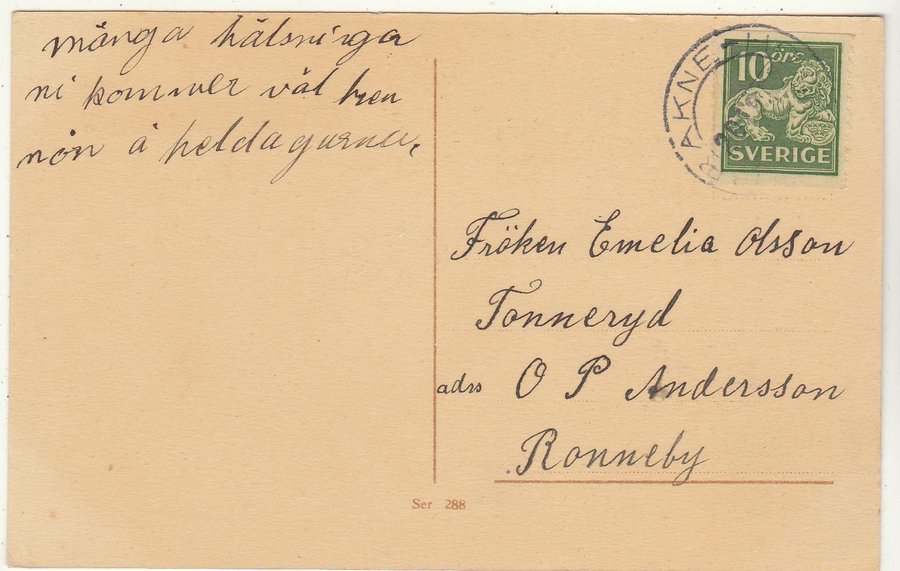 många hälsninga
ni kommer väl hem
nön å heldagarna.
10 öre
SVERIGE
RAKNE-H
Fröken Emelia Olsson
Tonneryd
adrs O P Andersson
Ronneby
Ser 288